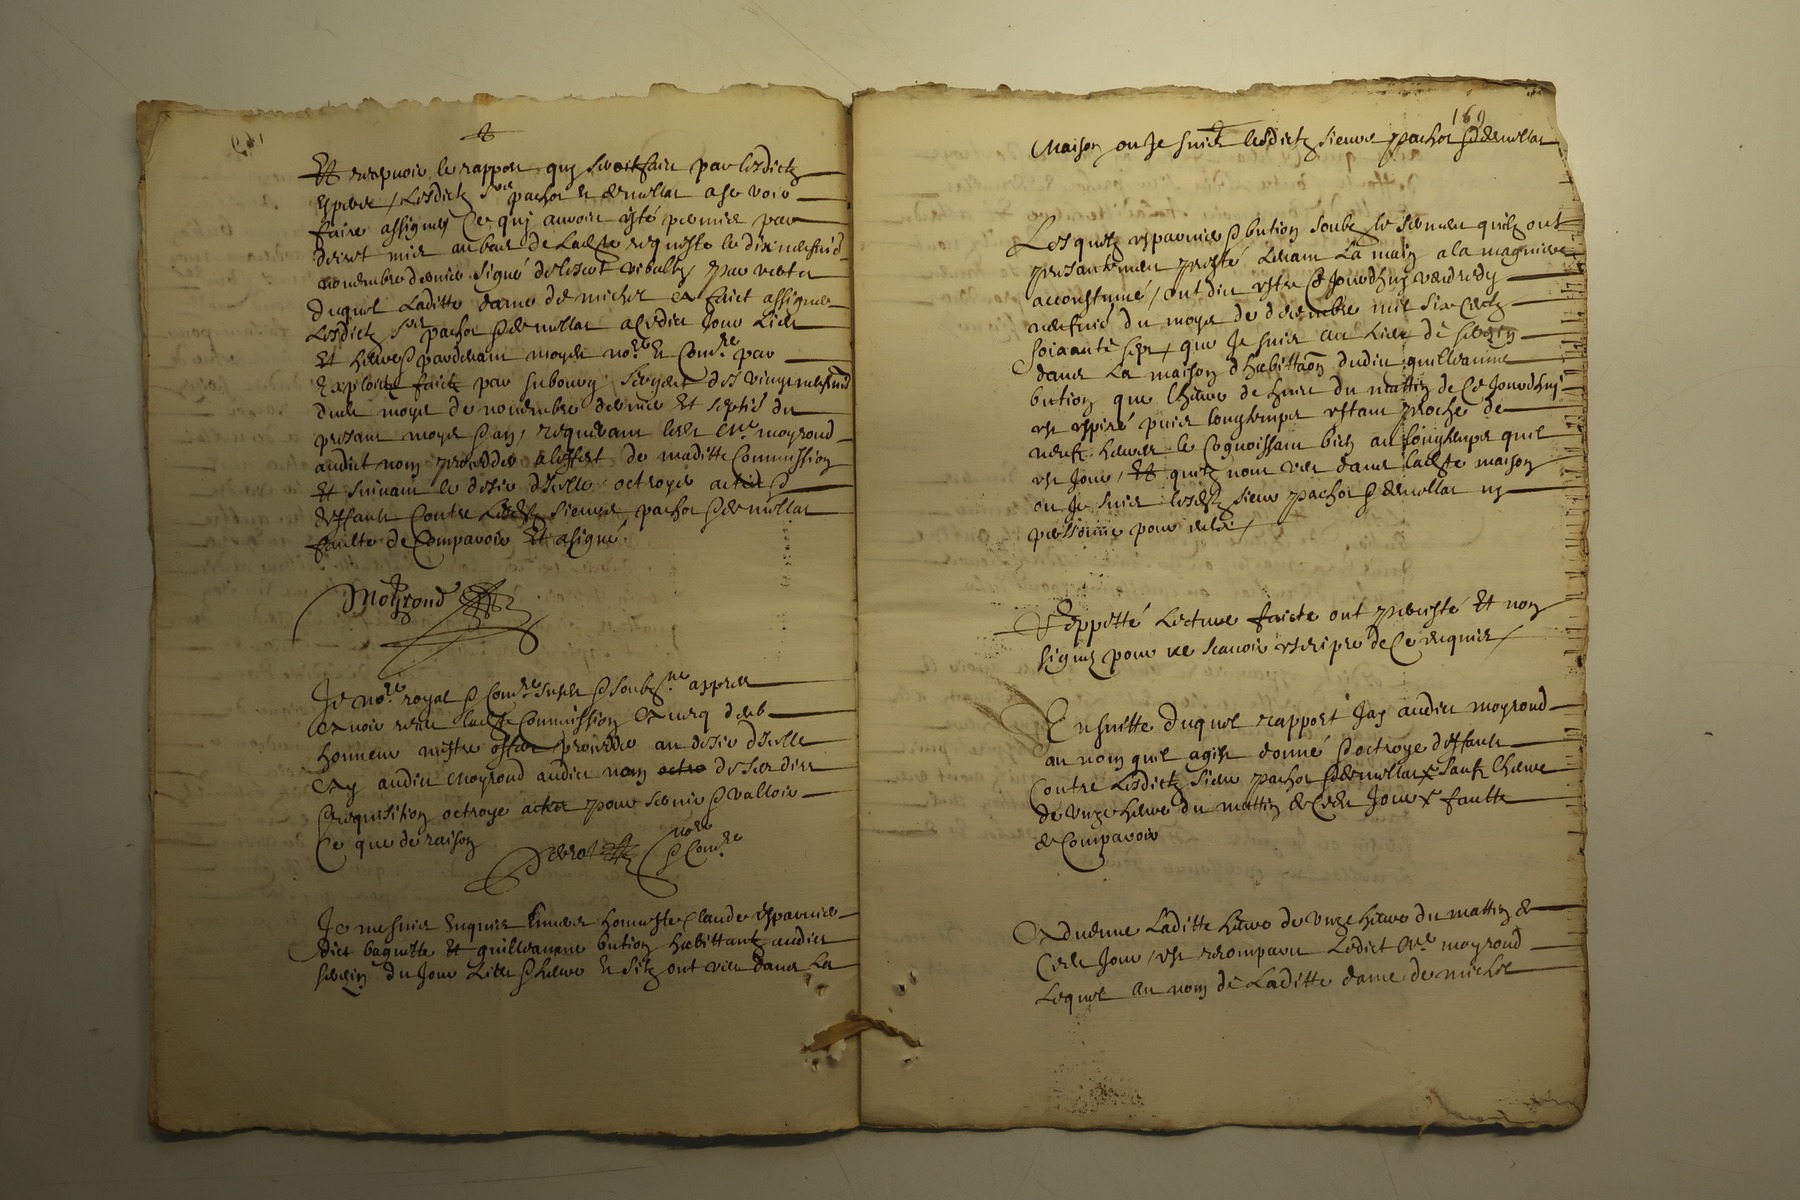 Et recepvoir le rapport quy seroit faict par lesdictz
lesdictz Srs pachot & demollar a se voir
faire assignes Ce quj auroit esté premier par
decret mis au bas de laditte requeste le dix neufvie
novembre dernier signé par vertu
duquel Laditte dame de michel a faict assigner
Lesdictz Srs pachot & demollar a Cedict Jour Lieu
Et heure pardevant moyd. nore & Comre par
Exploictz faictz par subourg sergent des vingtneufvie
dud. moys de novembre dernier Et septie du
present moys & an, requerant led. Me moyroud
audict nom proceddé a l'effect de maditte Commission
Et suivant le desir d'Icelle octroyer acte &
deffault Contre Lesdtz sieurs pachot & demollar
faulte de Comparoir Et a signé
Moyroud
Je nore royal & Comre susd. & soubzne appres
avoir reveu ladte Commission avecq deub
honneur offert procedder au desir d'Icelle
Et ay audict moyroud audict nom octro de ses dires
& requisition octroyé acte pour servir & valloir
Ce que de raison
nore
& Comre
Je me suis enquis honneste Claude esparvier
dict baquette Et guilleaume bution habittantz audict
du Jour Lieu & heure & silz ont veu dans La
169
Maison ou Je suis lesdictz sieurs pachot & demollar
Lesquelz esparvier & bution soubz le serment quilz ont
presantement presté Levant La main a la magniere
accoustumé, ont dict estre Ce Jourdhuy vendredy
neufvie du moys de decembre mil six centz
soixante sept, que Je suis au Lieu de
dans La maison d'habittaon dudict guilleaume
bution que l'heure de huict du mattin de Ce Jourdhuy
est expiré puis longtemps estant proche de
neufz heures le Cognoissant bien au longtemps quil
est Jour, Et quilz nont veu dans ladte maison
ou Je suis lesdtz sieurs pachot & demollar ny
personne pour eulx,
Reppetté Lecture faicte ont percisté Et non
signes pour ne scavoir escripre de Ce requis,
En suitte duquel rapport Jay audict moyroud
au nom quil agist donné & octroyé deffault
Contre Lesdictz sieurs pachot & demollar sauf l'heure
de unze heures du mattin de Ced. Jour & faulte
de Comparoir
Advenue Laditte heure de unze heures du mattin de
Ced. Jour, est recomparu Ledict Me moyroud
Lequel au nom de Laditte dame de michel